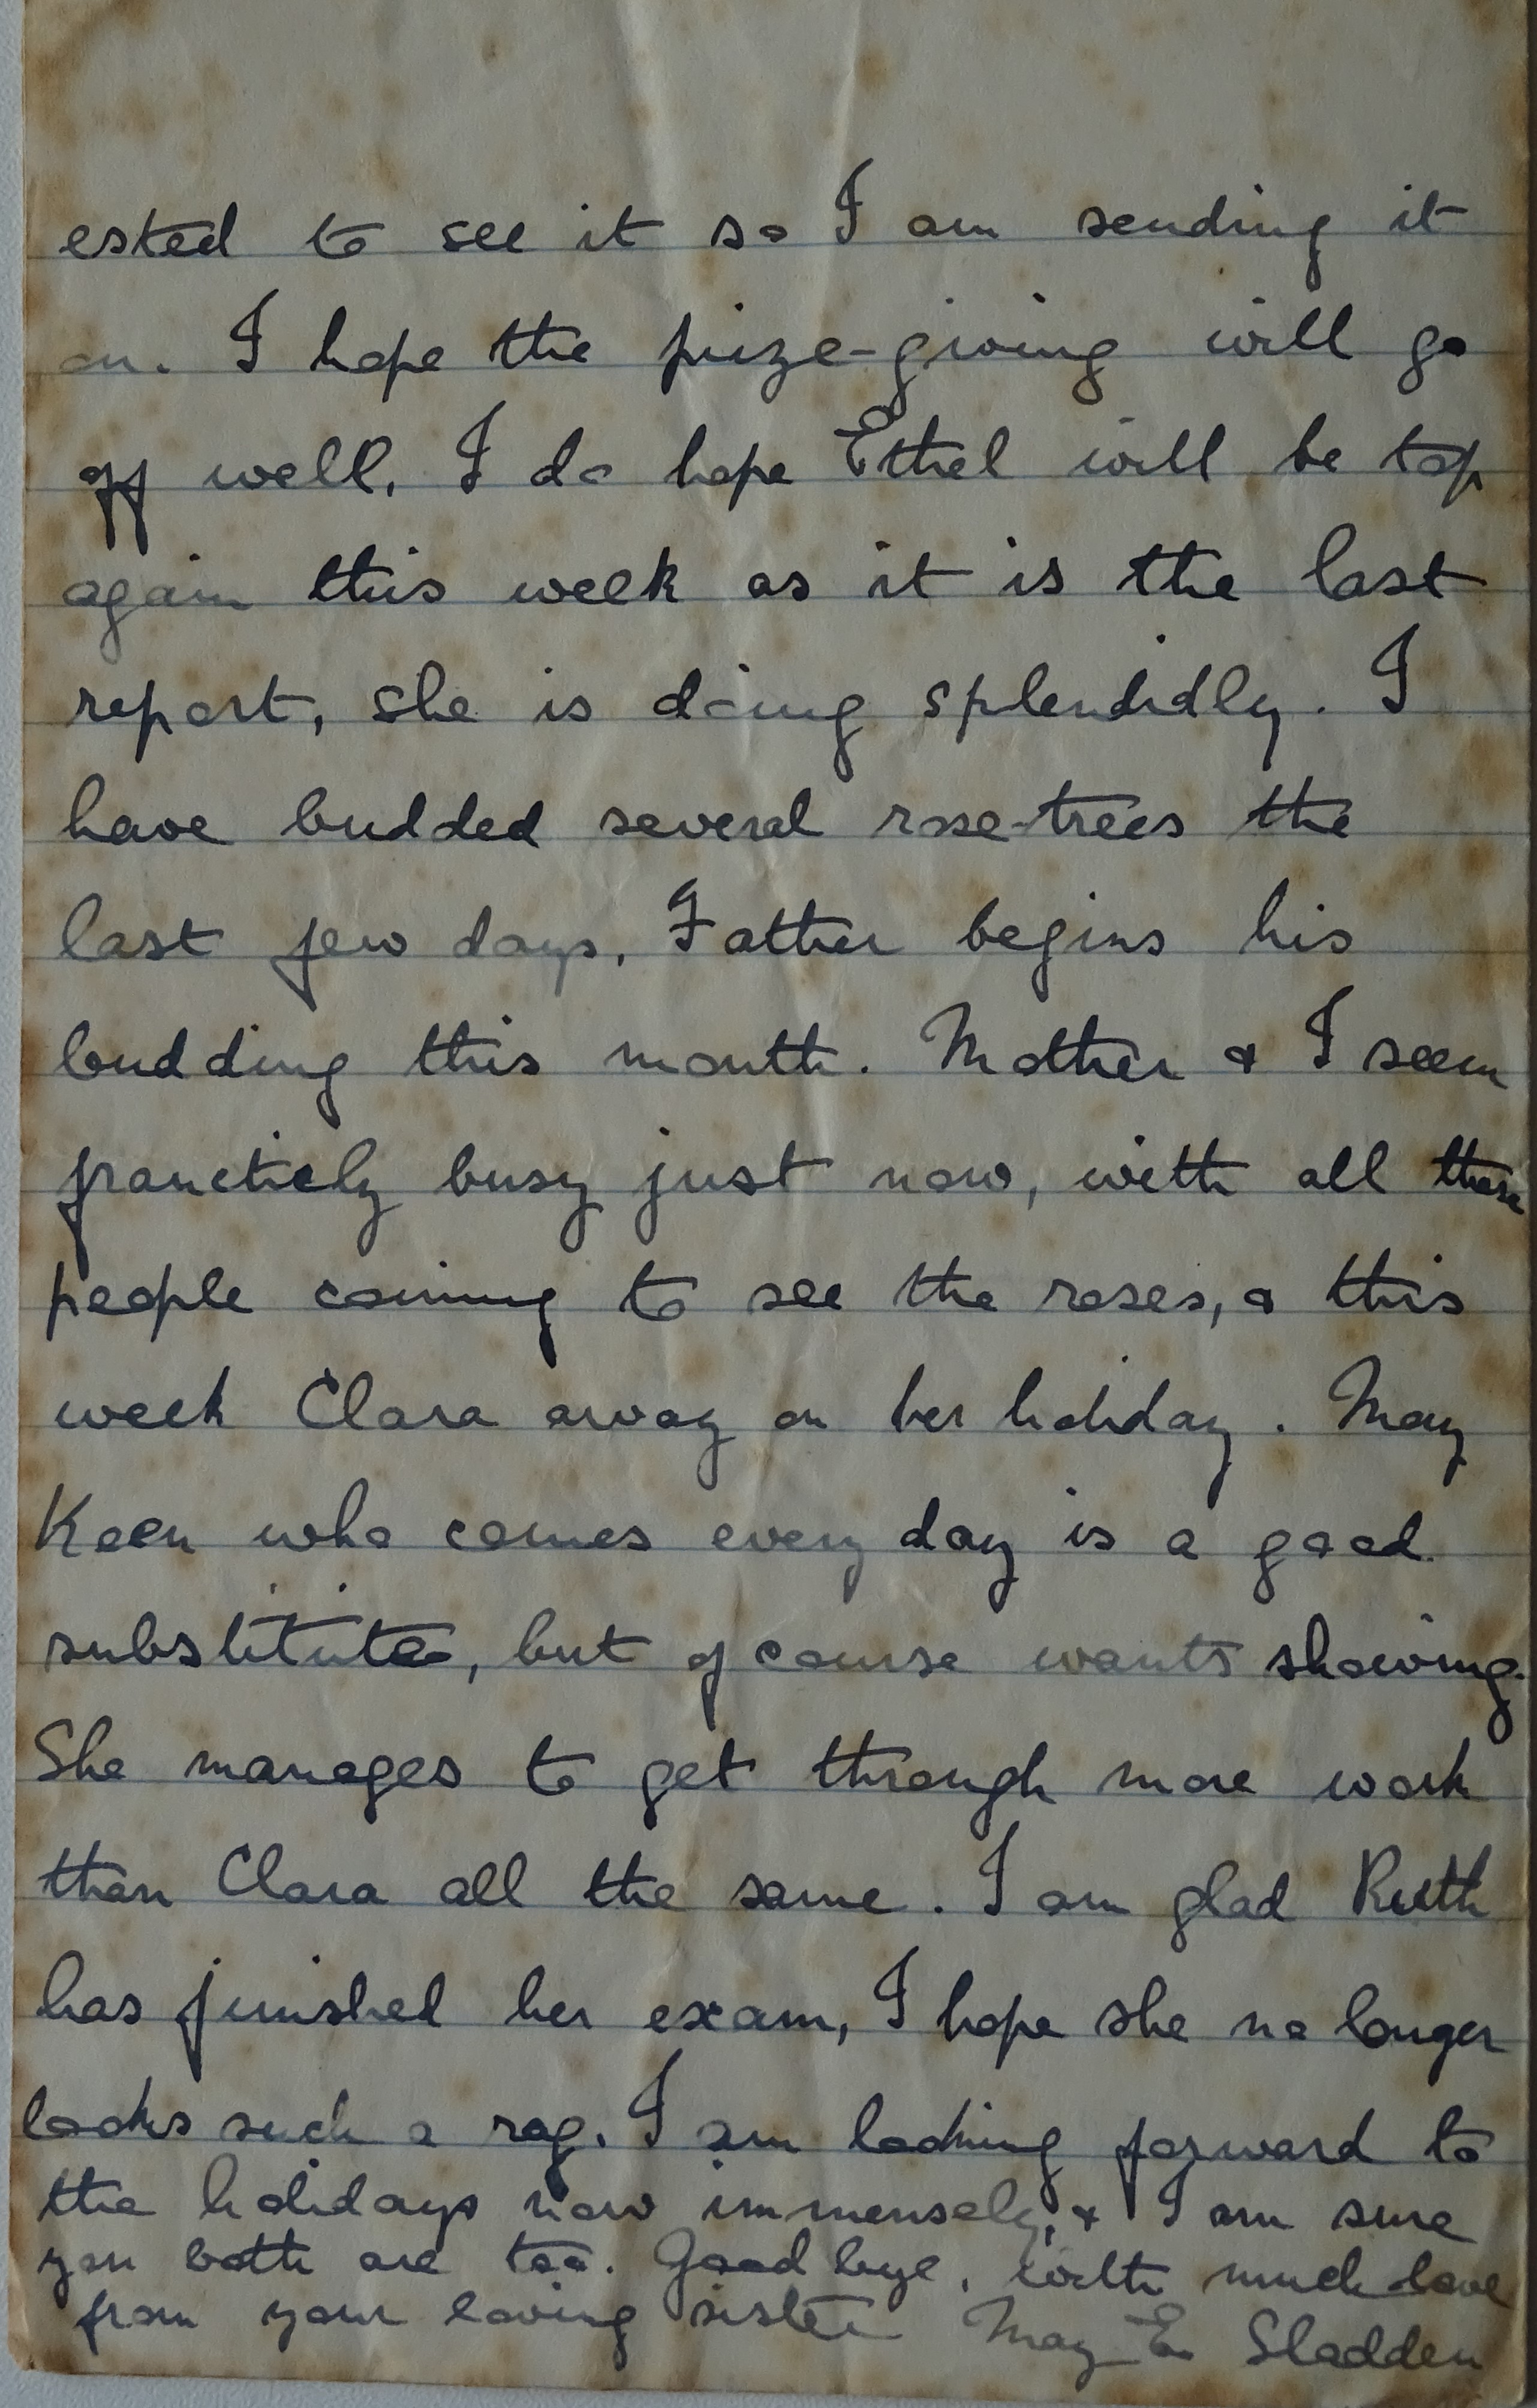 ested to see it so I am sending it
on. I hope the prize-giving will go
off well, I do hope Ethel will be top
again this week as it is the last
report, she is doing splendidly. I
have budded several rose-trees the
last few days, Father begins his
budding this month. Mother & I seem
franctiely busy just now, with all these
people coming to see the roses, & this
week Clara away on her holiday. May
Keen who comes every day is a good
substitute, but of course wants showing.
She manages to get through more work
than Clara all the same. I am glad Ruth
has finished her exam, I hope she no longer
looks such a rag. I am looking forward to
the holidays now immensely, & I am sure
you both are too. Good bye, with much love
from your loving sister May E. Sladden